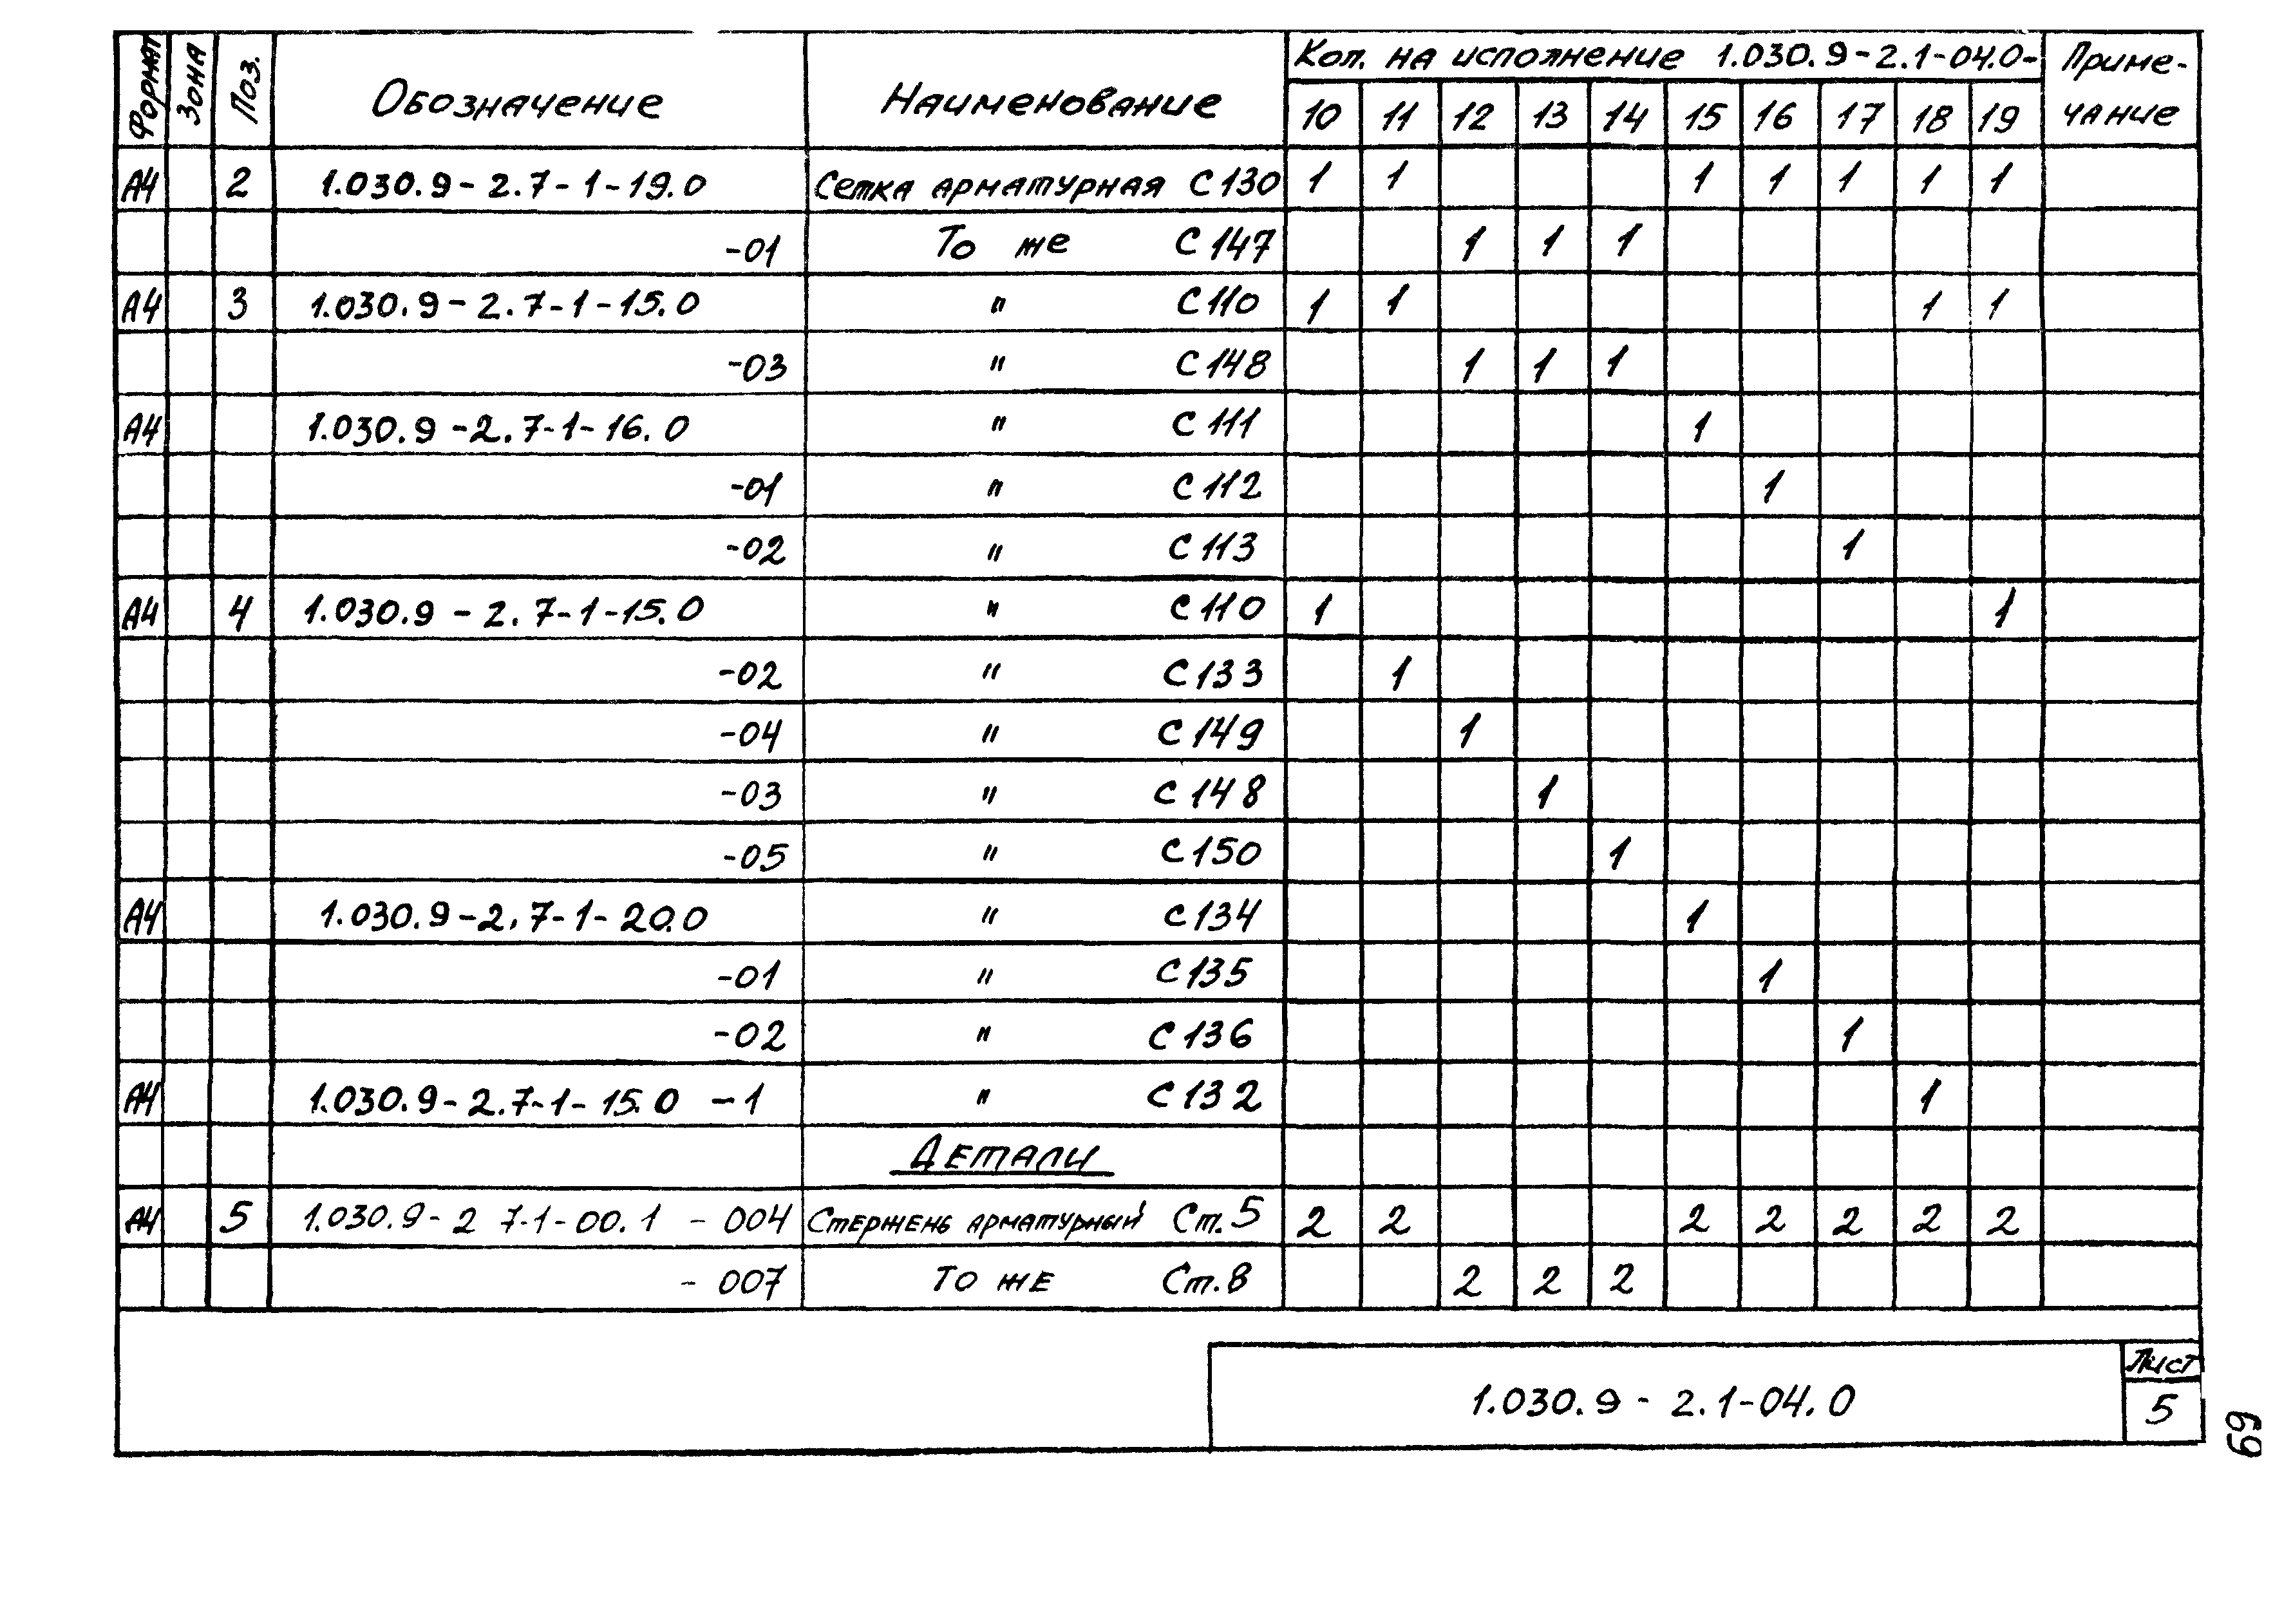 Формат Зона Поз. Обозначение Наименование Кол. на исполнение 1.030.9-2.1-04.0- Приме-
10 11 12 13 14 15 16 17 18 19 чание
А4 2 1.030.9-2.7-1-19.0 Сетка арматурная С130 1 1 1 1 1 1 1
-01 То же С147 1 1 1
А4 3 1.030.9-2.7-1-15.0 " С110 1 1 1 1
-03 " С148 1 1 1
А4 1.030.9-2.7-1-16.0 " С111 1
-01 " С112 1
-02 " С113 1
А4 4 1.030.9-2.7-1-15.0 " С110 1 1
-02 " С133 1
-04 " С149 1
-03 " С148 1
-05 " С150 1
А4 1.030.9-2.7-1-20.0 " С134 1
-01 " С135 1
-02 " С136 1
А4 1.030.9-2.7-1-15.0 -1 " С132 1
Детали
А4 5 1.030.9-2 7-1-00.1 - 004 Стержень арматурный Ст.5 2 2 2 2 2 2 2
- 007 То же Ст.8 2 2 2
Лист
1.030.9 - 2.1-04.0 5
69